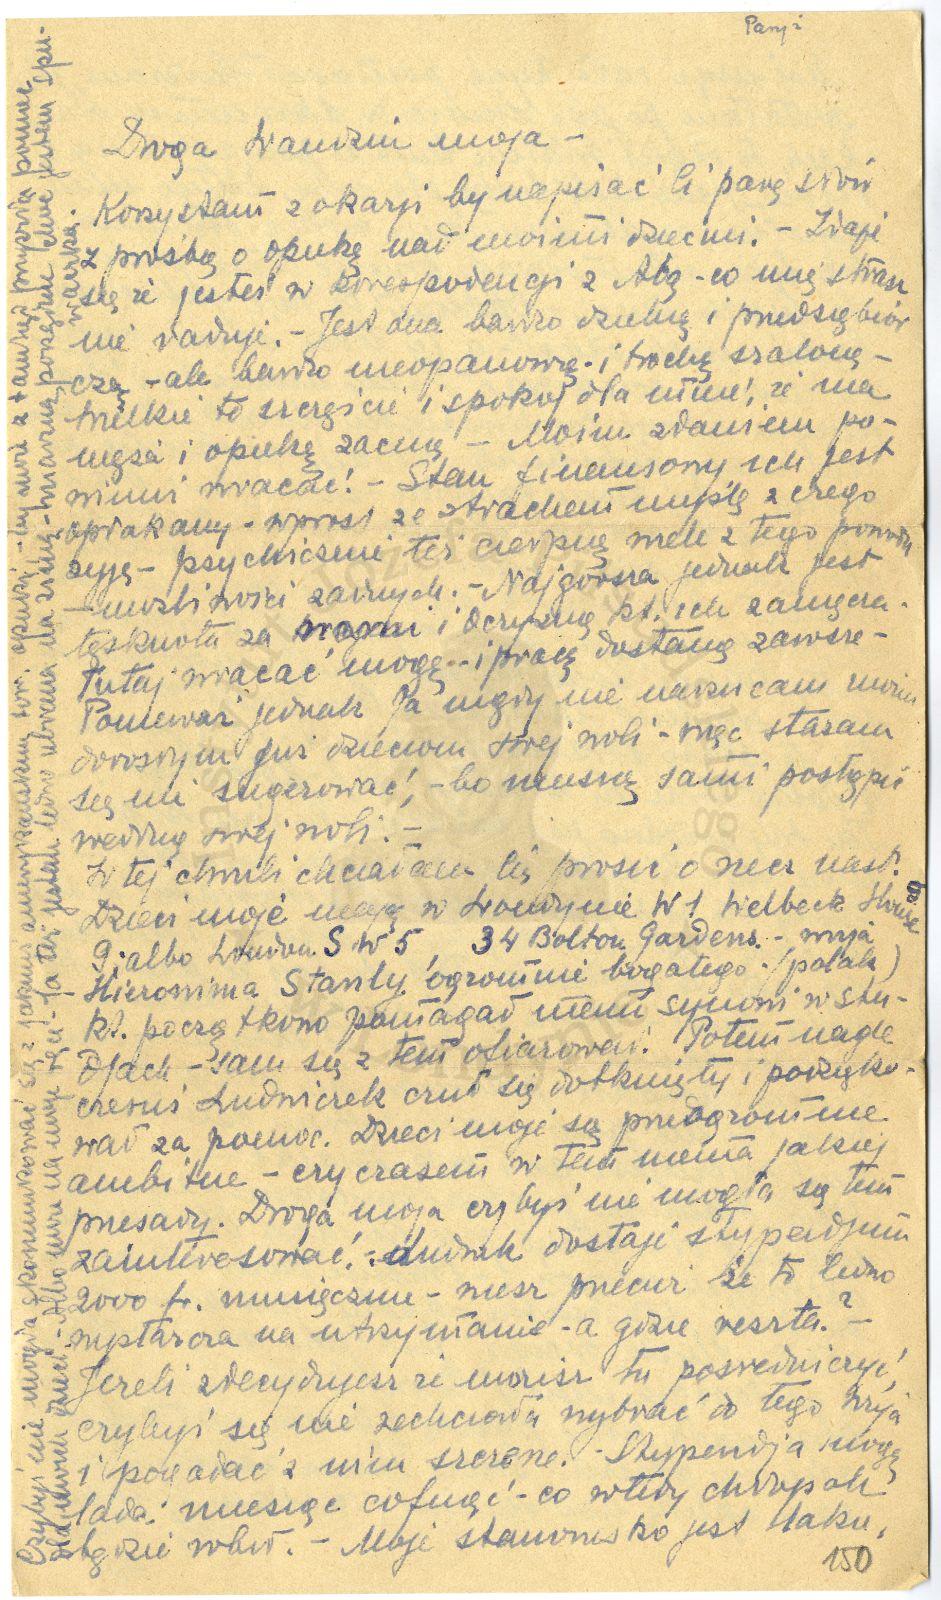 Paryż
Droga Wandziu moja –
Korzystam z okazji by napisać Ci parę słów
z prośbą o opiekę nad moimi dziećmi. – Zdaje
się że jesteś w korespodencji z Alą – co mię strasz
nie raduje. – Jest ona bardzo dzielną i przedsiębior
czą – ale bardzo nieopanowaną i trochę szaloną –
Wielkie to szczęście i spokój dla mnie, że ma
męża i opiekę zacną – Moim zdaniem po-
winni wracać! – Stan finansowy ich jest
opłakany – wprost ze strachem myślę z czego
żyją – psychicznie też cierpią wiele z tego powodu
– możliwości żadnych. – Najgorsza jednak jest
tęsknota za nami i ojczyzną kt. ich zamęcza.
Tutaj wracać mogą – i pracę dostaną zawsze –
Ponieważ jednak ja nigdy nie narzucam moim
dorosłym już dzieciom swej woli – więc staram
się nie sugerować, – bo muszą sami postąpić
według swej woli. –
W tej chwili chciałam Cię prosić o rzecz nast.
Dzieci moje mają w Londynie W 1 Welbeck House
9. albo London SW 5, 34 Bolton Gardens – wuja
Hieronima Stanly ogromnie bogatego (polak)
kt. początkowo pomagał memu synowi w stu-
djach – sam się z tem ofiarował. Potem nagle
czemuś Ludwiczek czuł się dotknięty i podzięko-
wał za pomoc. Dzieci moje są przeogromnie
ambitne – czy czasem w tem niema jakiej
przesady. Droga moja czybyś nie mogła się tem
zainteresować. Ludwik dostaje stypendjum
2000 fr. miesięcznie – wiesz przecie że to ledwo
wystarcza na utrzymanie – a gdzie reszta? –
Jeżeli zdecydujesz że możesz tu pośredniczyć,
czybyś się nie zechciała wybrać do tego wuja
i pogadać z nim szczerze. – Stypendja mogą
lada miesiąc cofnąć – co wtedy chłopak
będzie robił. – Moje stanowisko jest takie,
150
Czybyś nie mogła skomunikować się z jakimś amerykańskim tow. opieki – by może z tamtąd przyszła pomoc
dla moich dzieci – Albo może na moje ręce – Ja też jestem ledwo ubrana na zimę – marzną porządnie choć jestem spu-